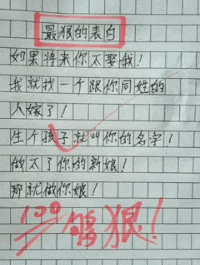 最狠的表白
如果将来你不要我！
我就找一个跟你同姓的
人嫁了！
生个孩子就叫你的名字！
做不了你的新娘！
那就做你娘！
100
够狠！